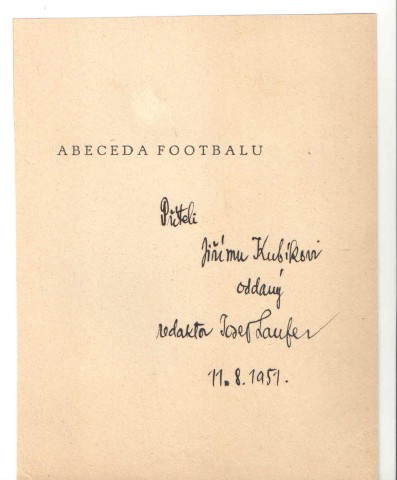 ABECEDA FOOTBALU
Příteli
Jiřímu Kubíkovi
oddaný
redaktor Josef Laufer
11.8.1951.